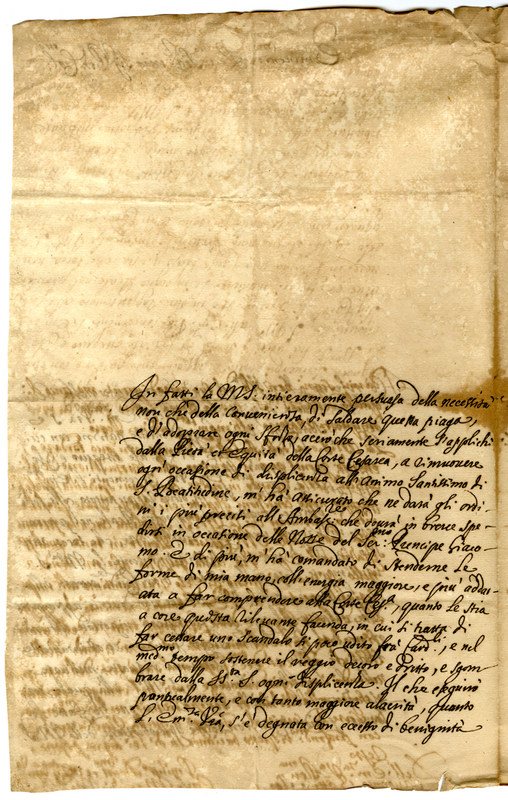 In fatti la M.S. intieramente persuasa della necessità
non che della Convenienza, di saldare questa piaga,
e d'adoprare ogni sforzo, acciò che seriamente s'applichi
dalla Pietà et Equità della Corte Cesarea, a rimuovere
ogni occasione di displicenza all'Animo Santissimo di
S. Beatitudine, m'hà assicurato che ne darà gli ordi-
ni i più precisi all' che dovrà in breve spe-
dirsi in occasione delle Nozze del Principe Giaco-
mo. E di più, m'hà comandato di stenderne le
forme di mia mano, coll'energia maggiore, e più adat-
tata a far comprendere alla Corte , quanto le stia
a core questa rilevante facenda, in cui si tratta di
far cessare uno scandalo sì poco udito , e nel
med.mo tempo sostenere il reggio decoro e dritto, e sgom-
brare dalla S. ogni displicenza. Il che eseguirò
pontualmente, e con tanto maggiore alacrità, quanto
s'è degnata con eccesso di benignità